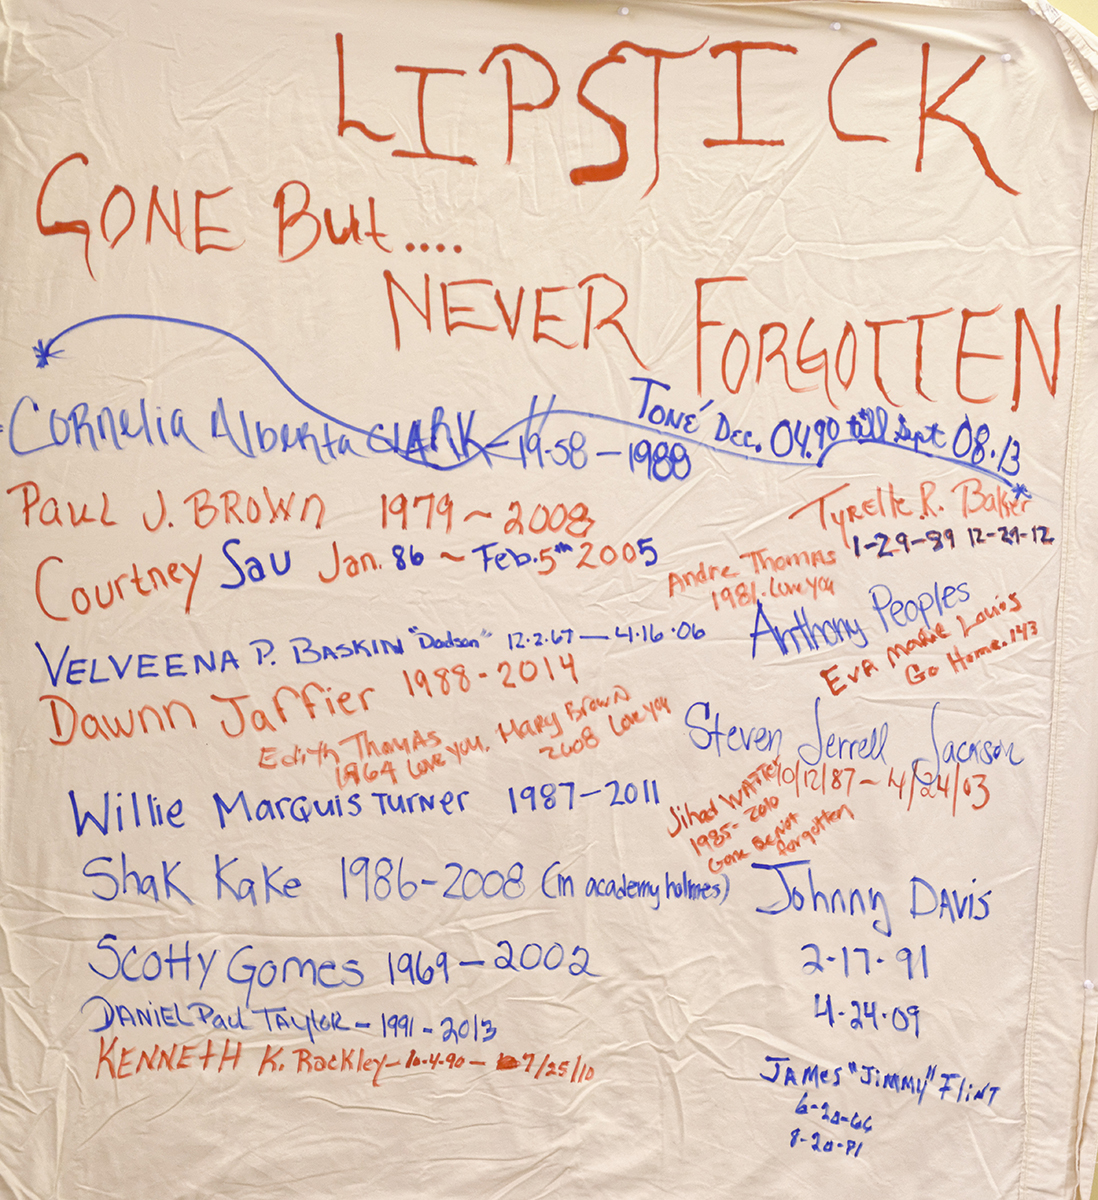 LIPSTICK
GONE BUt....
NEVER FORGOTTEN
Cornelia Alberta CLARK - 19.58 - 1988
TONÉ Dec. 04.90 till Sept 08.13
PAUL J. BROWN 1979 ~ 2008
TYRELLE R. Baker
1-29-89 12-29-12
Courtney Sau Jan. 86 ~ Feb. 5th 2005
Andre Thomas
1981. Love you
Anthony Peoples
VELVEENA P. BASKIN "Dodson" 12.2.67 — 4.16.06
EVA Marie Louis
Go Home. 143
Dawnn Jaffier 1988 - 2014
Edith Thomas
1964 Love you.
Mary Brown
2008 Love you
Steven Jerrell Jackson
10/12/87 ~ 4/24/03
Willie Marquis Turner 1987-2011
Jihad
1985-2010
Gone But not
forgotten
Shak Kake 1986-2008 (in academy holmes)
Johnny DAVIS
2-17-91
4-24-09
Scotty Gomes 1969 - 2002
DANiEL Paul Taylor - 1991 - 2013
KENNEtH K. Rackley - 10-4-90 - 7/25/10
JAMes "JiMMy" FliNT
6-20-66
8-20-81